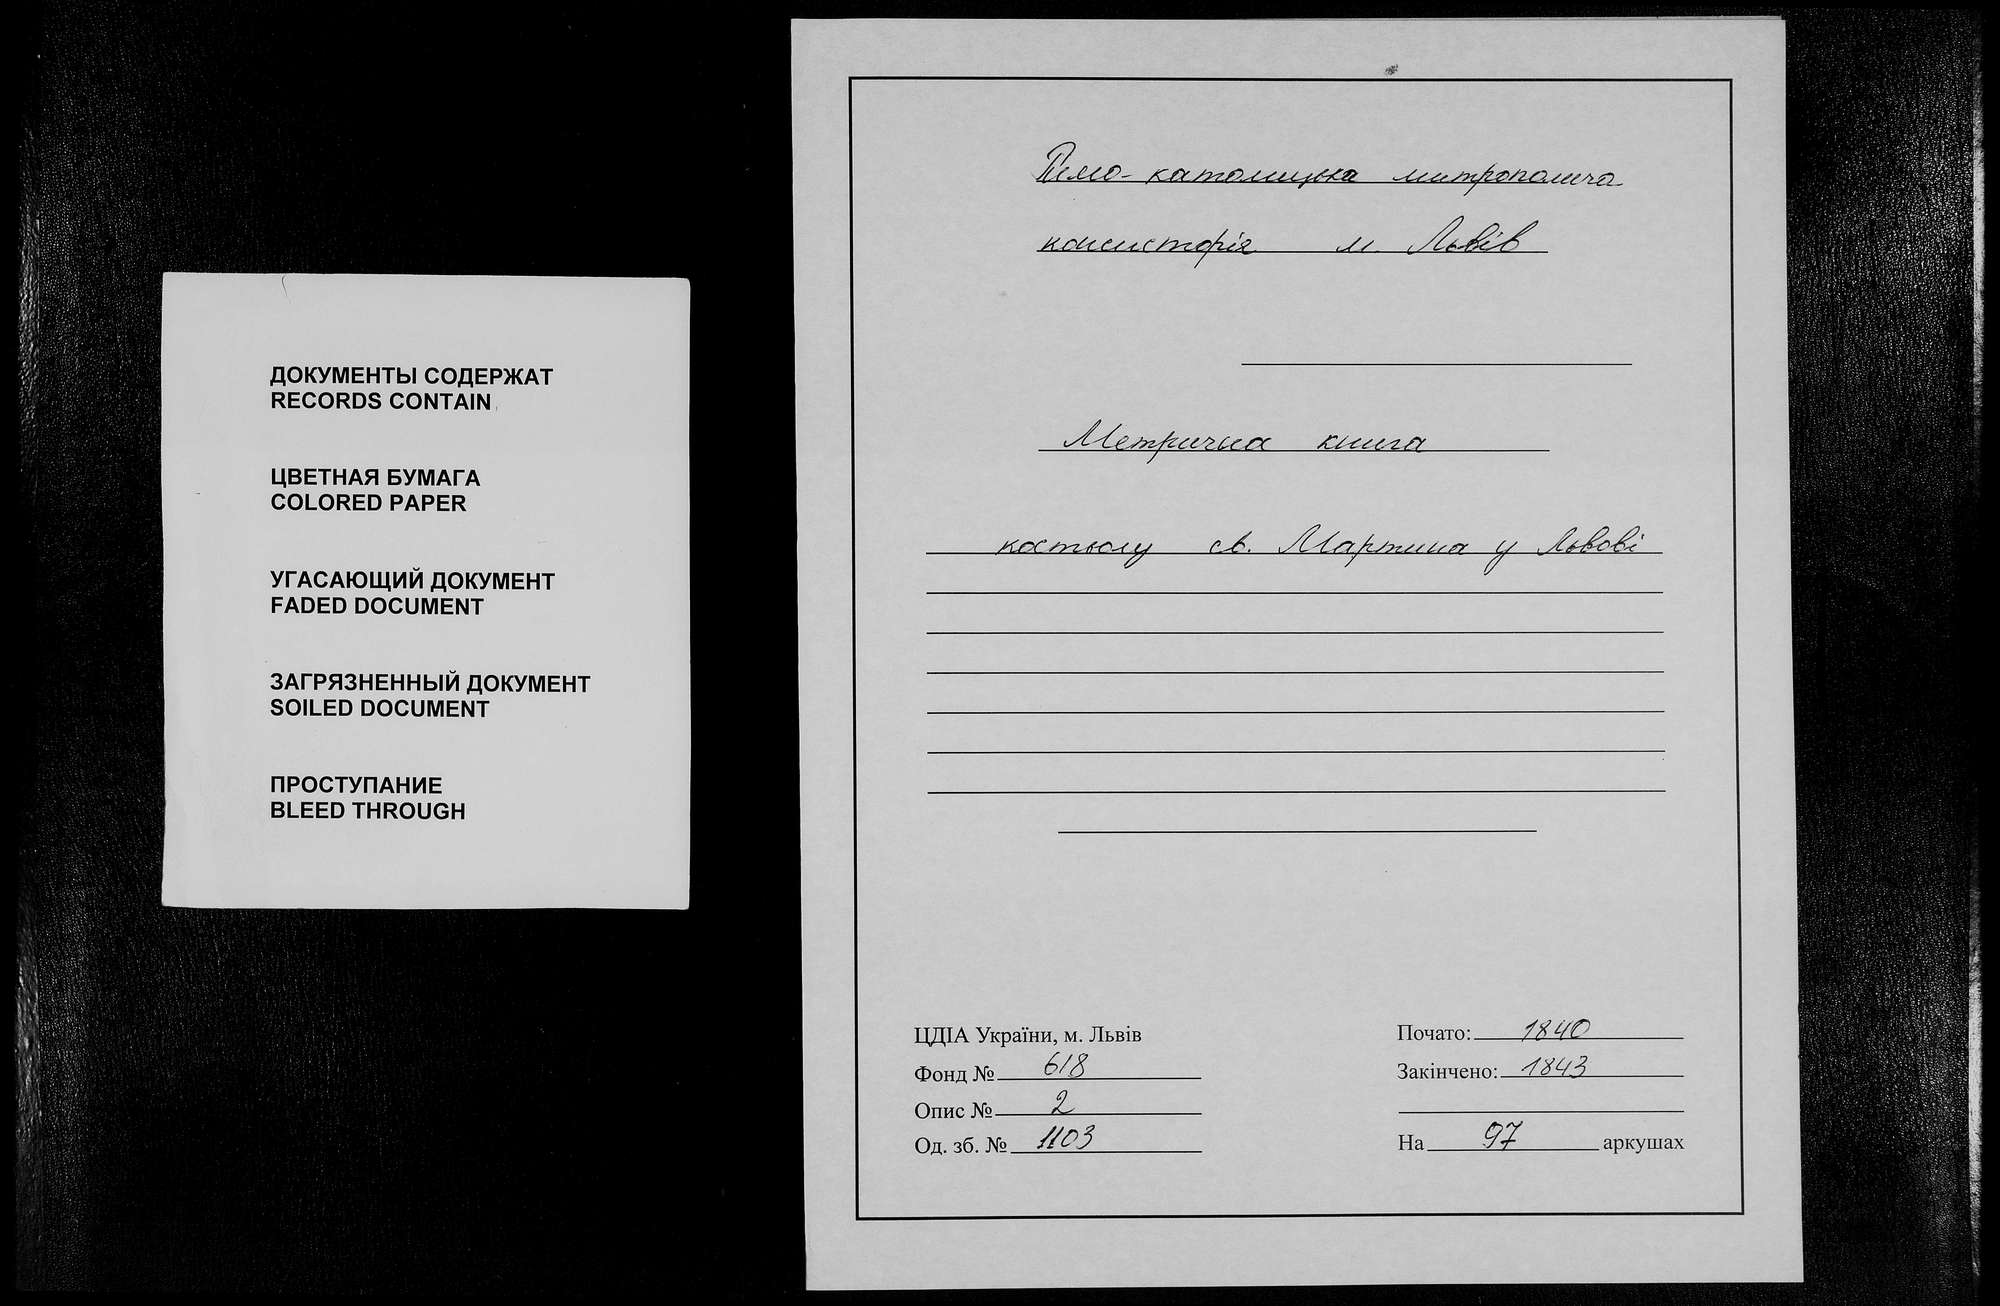 ДОКУМЕНТЫ СОДЕРЖАТ
RECORDS CONTAIN
ЦВЕТНАЯ БУМАГА
COLORED PAPER
УГАСАЮЩИЙ ДОКУМЕНТ
FADED DOCUMENT
ЗАГРЯЗНЕННЫЙ ДОКУМЕНТ
SOILED DOCUMENT
ПРОСТУПАНИЕ
BLEED THROUGH
Римо-католицька митрополича
консисторія м. Львів
Метрична книга
костьолу св. Мартина у Львові
ЦДІА України, м. Львів
Фонд № 618
Опис № 2
Од. зб. № 1103
Почато: 1840
Закінчено: 1843
На 97 аркушах